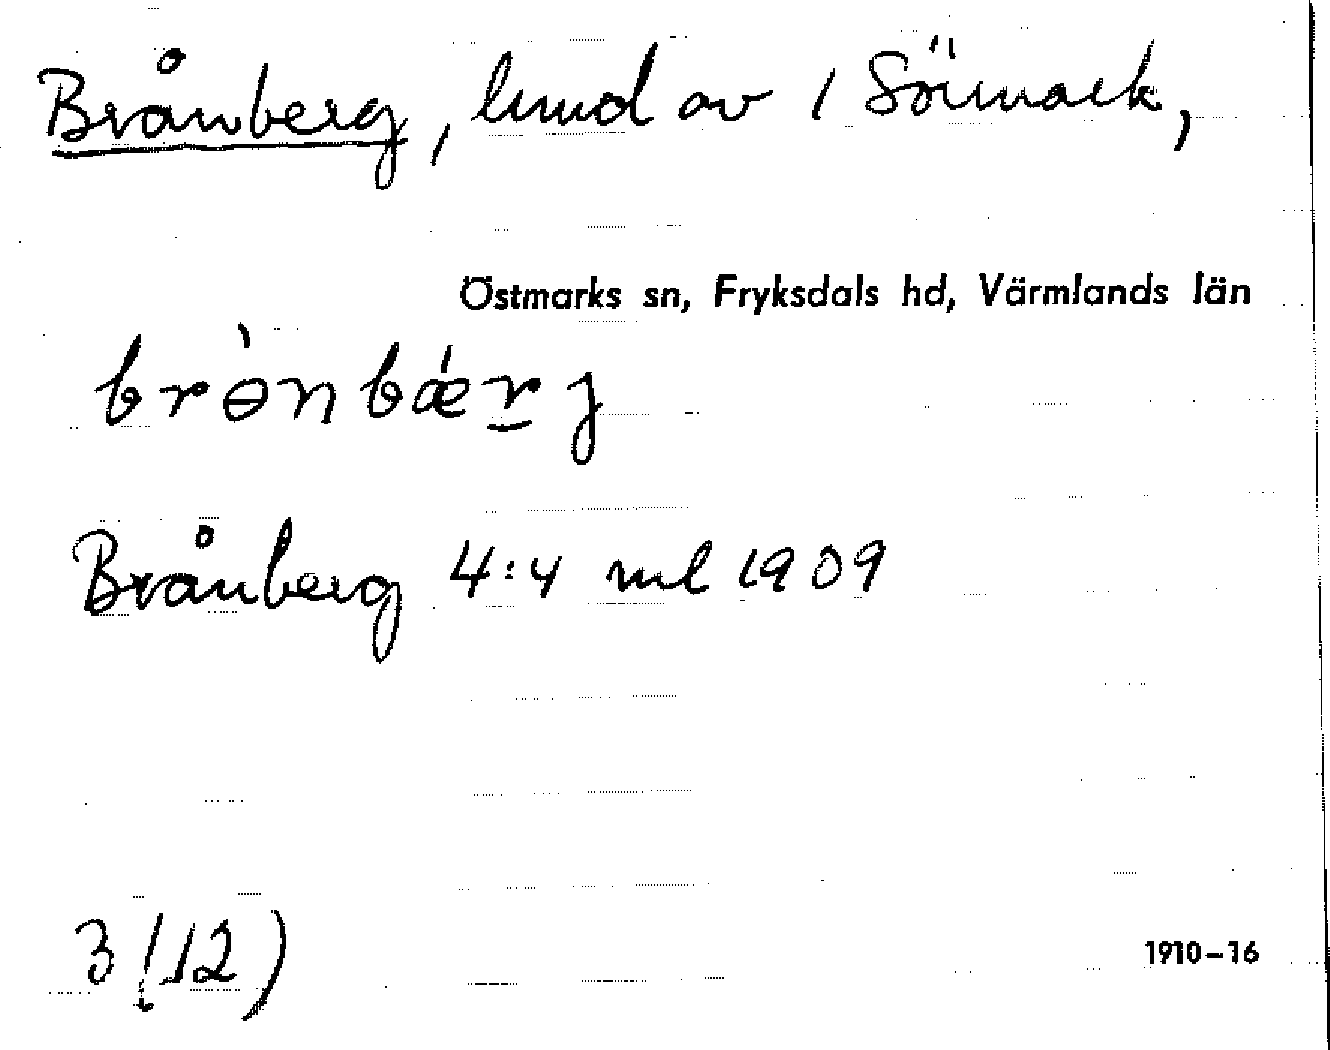 Brånberg, hmd av 1 Sörmark,
Östmarks sn, Fryksdals hd, Värmlands län
brɵ̀nbǽrj
Brånberg 4:4 ml 1909
3 (12)
1910–16